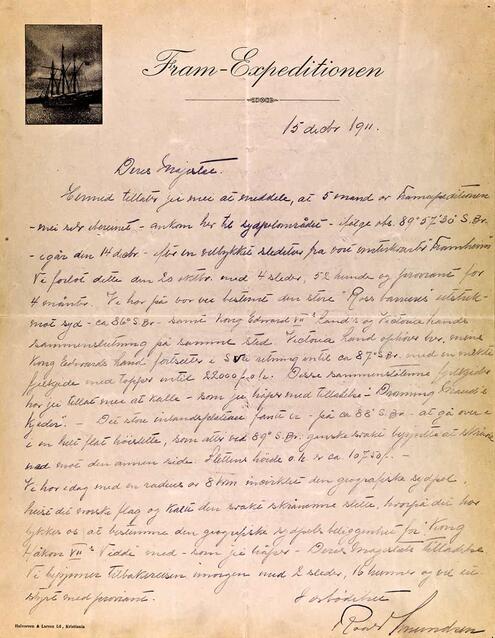 Fram-Expeditionen
15 decbr 1911.
Deres Majestæt.
Hermed tillater jeg mig at meddele, at 5 mand av Framexpeditionen
- mig selv iberegnet - ankom her til sydpolområdet - ifølge obs. 89° 57' 30" S.Br.
- igår den 14 decbr. - efter en vellykket sledetur fra vort vinterkvarter "Framheim"
Vi forlot dette den 20 oktbr. med 4 sleder, 52 hunde og proviant for
4 månter. Vi har på vor vei bestemt den store "Ross barrieres" utstræk-
mot syd - ca 86° S.Br - samt Kong Edward VII's Land's og Victoria Lands
sammenslutning på samme sted. Victoria Land ophører her, mens
Kong Edwards Land fortsetter i retning intil ca 87° S.Br. med en mektig
fjelkjede med toppe intil 22000 f.o.h. Disse sammenstillende fjelkjeder
har jeg tillat mig at kalle - som jeg håper med tilladelse "Dronning Maud's
Kjeder". - Det store inlandsplateau fandt vi - på ca 88° S.Br. - at gå over i
i en helt flat høislette, som atter ved 89° S.Br. ganske svakt begyndte at skråne
ned mot den annen side. Slettens høide o.h. er ca 10750 f. -
Vi har idag med en radius av 8 km incirklet den geografiske sydpol,
heist det norske flag og kaldt den svake skrånende slette, hvorpå det har
lykkes os at bestemme den geografiske sydpols beliggenhet for "Kong
Håkon VII's Vidde" med - som jeg håper - Deres Majestæts tilladelse
Vi begynner tilbakereisen imorgen med 2 sleder, 16 hunner og vel ut-
styrt med proviant.
Forbødeligst
Roald Amundsen
Halvorsen & Larsen Ld., Kristiania